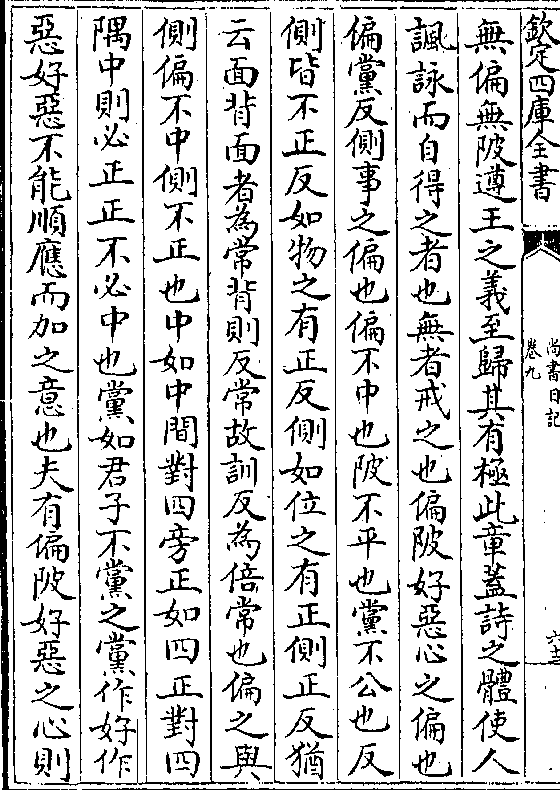 欽定四庫全書
尚書日記
卷九
六十三
無偏無陂遵王之義至歸其有極此章蓋詩之體使人
諷詠而自得之者也無者戒之也偏陂好惡心之偏也
偏黨反側事之偏也偏不中也陂不平也黨不公也反
側皆不正反如物之有正反側如位之有正側正反猶
云面背面者為常背則反常故訓反為倍常也偏之與
側偏不中側不正也中如中間對四旁正如四正對四
隅中則必正正不必中也黨如君子不黨之黨作好作
惡好惡不能順應而加之意也夫有偏陂好惡之心則